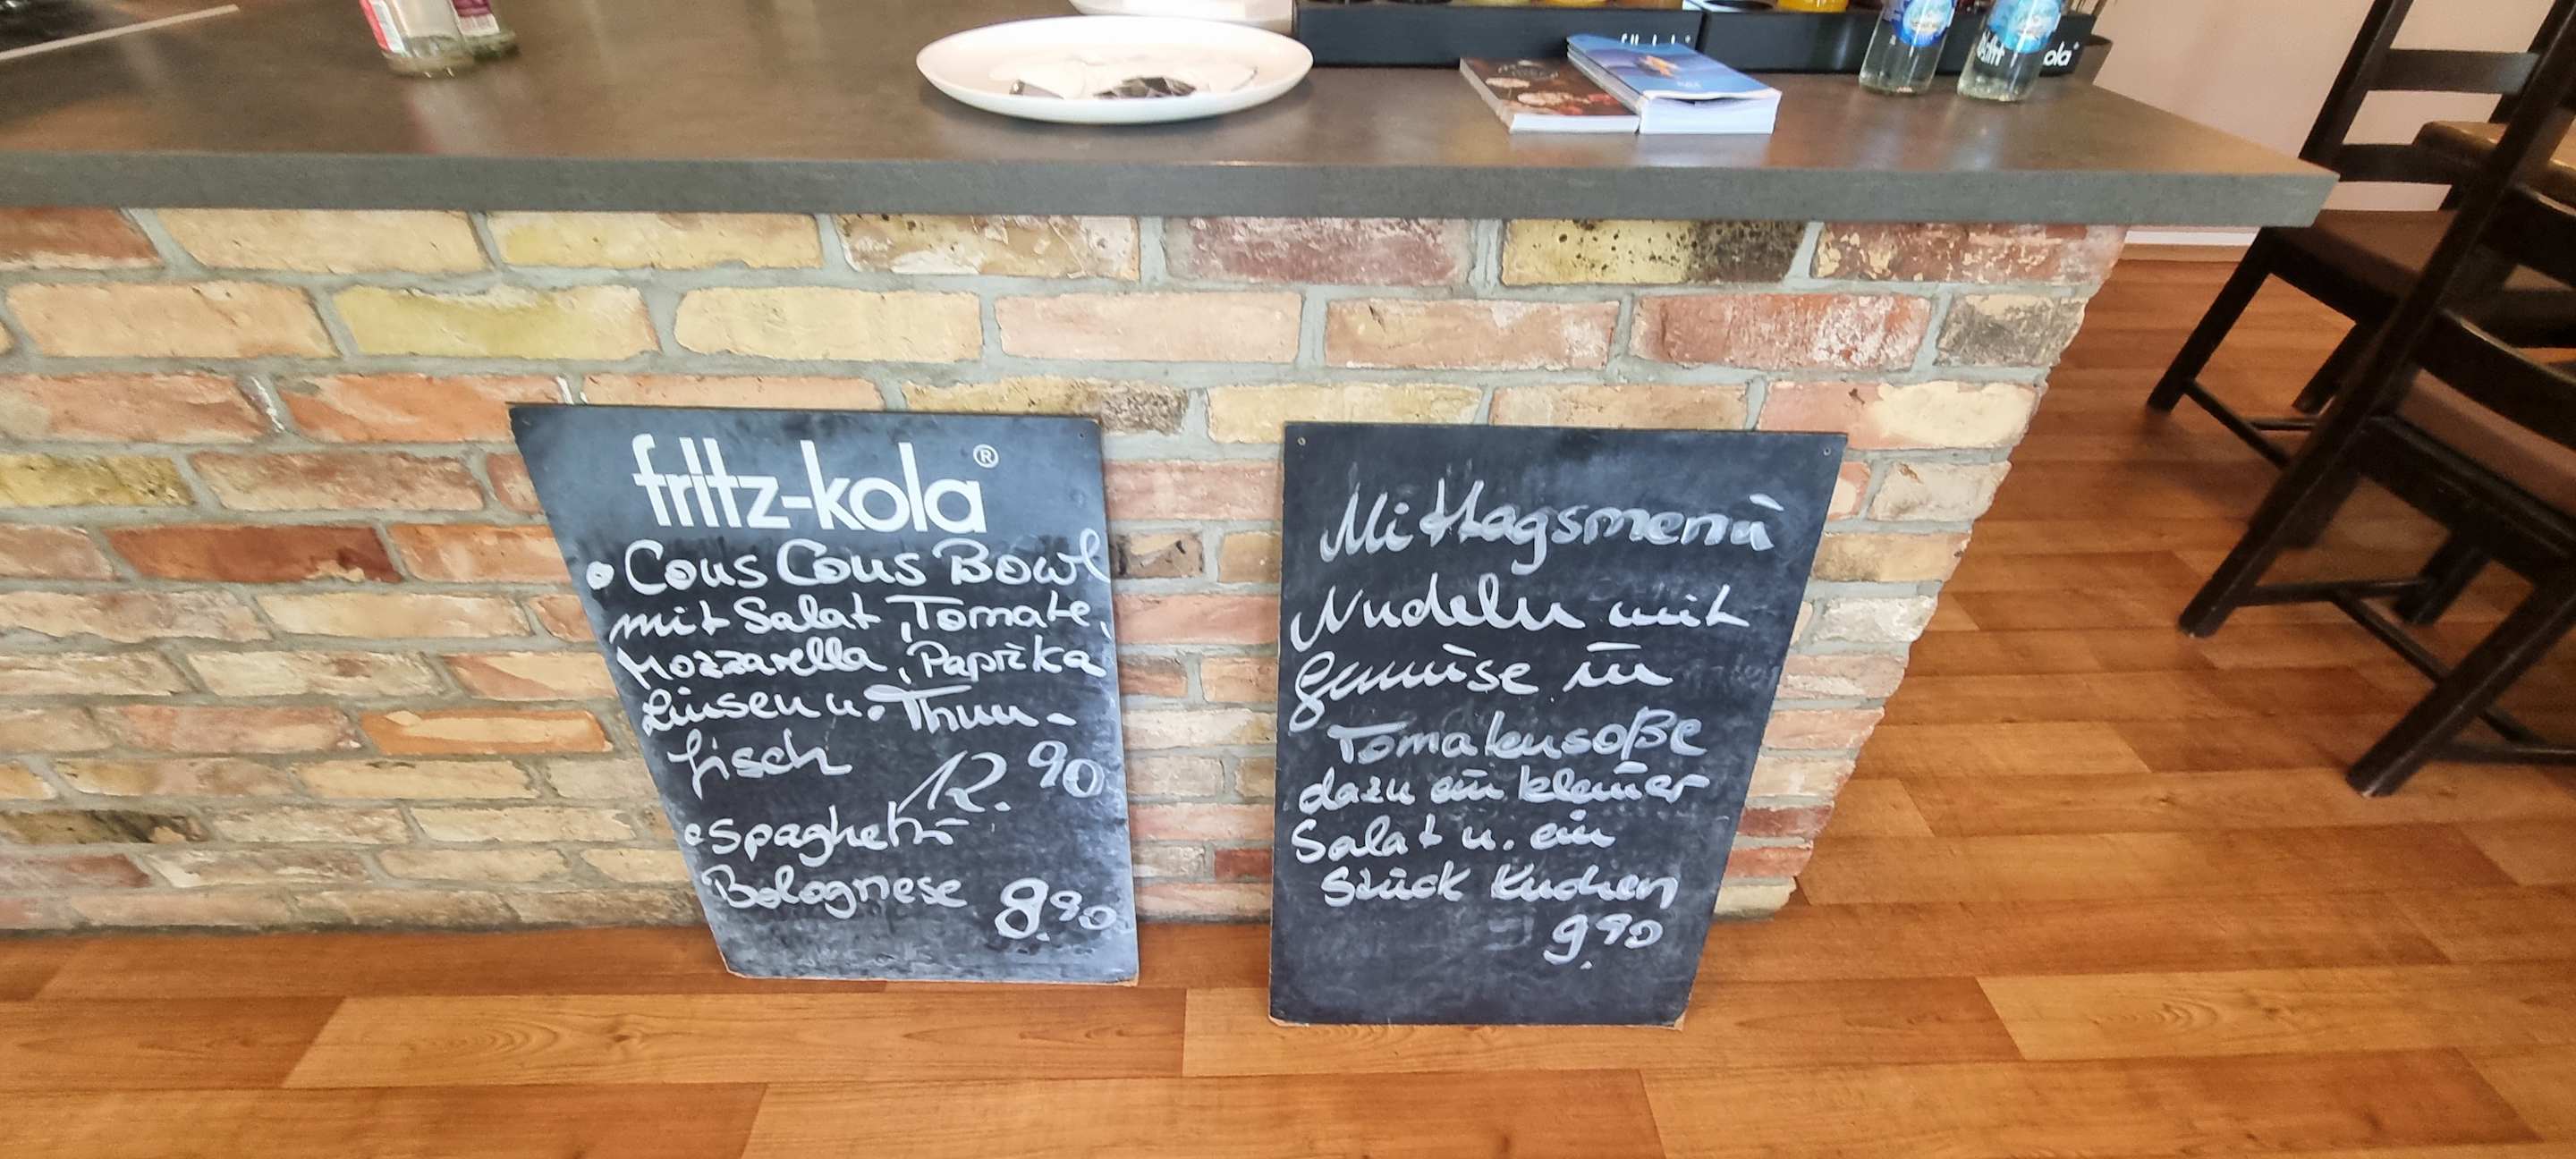 fritz-kola®
• Cous Cous Bowl
mit Salat, Tomate,
Mozzarella, Paprika
Linsen u. Thun-
fisch
12.90
• Spaghetti
Bolognese 8.90
Mittagsmenü
Nudeln mit
Gemüse in
Tomatensoße
dazu ein kleiner
Salat u. ein
Stück Kuchen
9.90